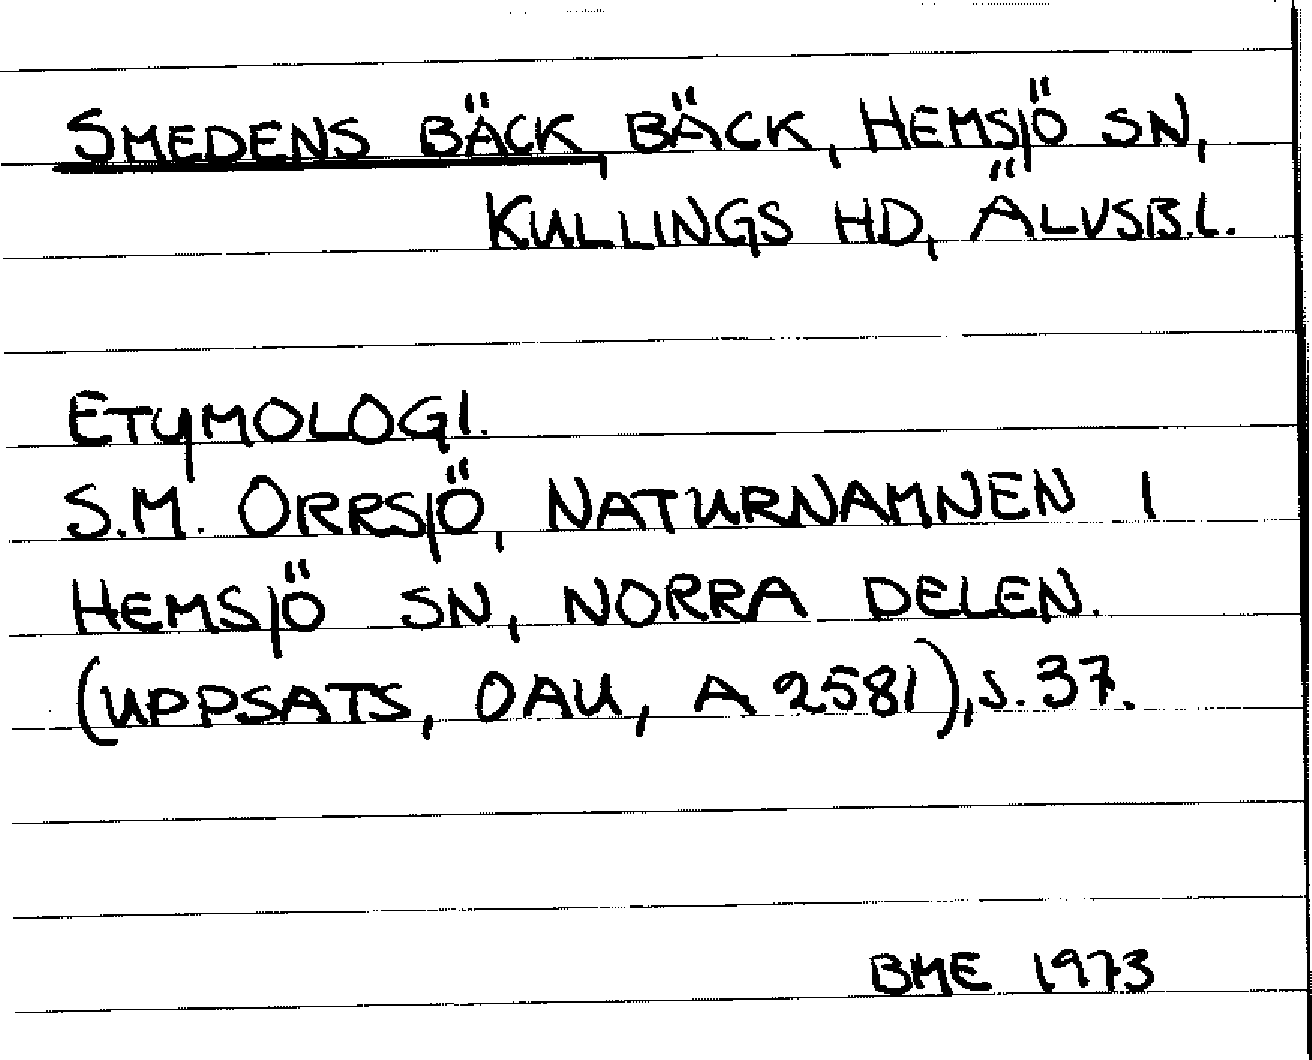 SMEDENS BÄCK, BÄCK, HEMSJÖ SN,
KULLINGS HD, ÄLVSB.L.
ETYMOLOGI.
S.M. ORRSJÖ, NATURNAMNEN I
HEMSJÖ SN, NORRA DELEN.
(UPPSATS, OAU, A 2581), S. 37.
BME 1973